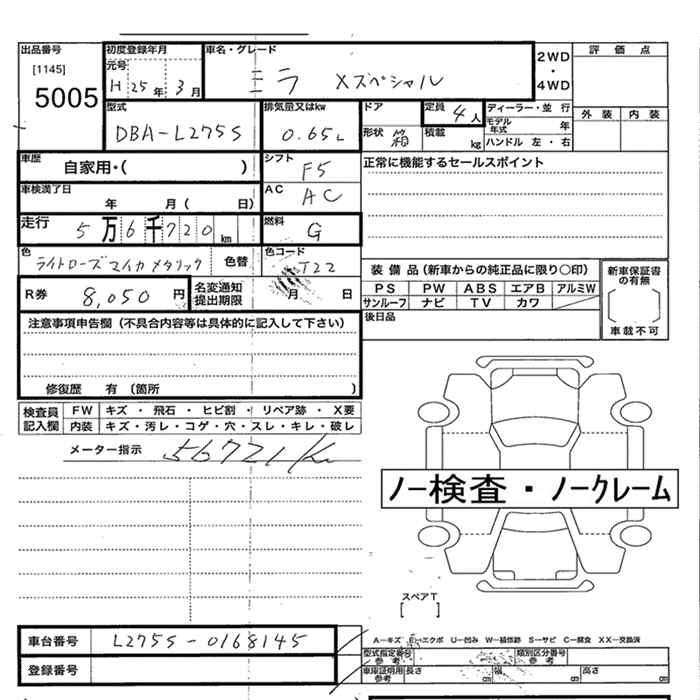 出品番号 初度登録年月 車名・グレード 2WD・4WD 評価点
[1145] 元号
5005 H25年 3月 ミラ Xスペシャル
外装 内装
型式 排気量又はkw ドア 定員 4人 ディーラー・並行
DBA-L275S 0.65L 形状 積載 kg モデル年式 年
ハンドル 左・右
車歴 自家用・( ) シフト F5 正常に機能するセールスポイント
車検満了日 年 月( 日) AC AC
走行 5万6千720km 燃料 G
色 ライトローズマイカメタリック 色替 色コード T22
装備品(新車からの純正品に限り〇印) 新車保証書の有無
PS PW ABS エアB アルミW
サンルーフ ナビ TV カワ
車載不可
R券 8,050円 名変通知提出期限 月 日
後日品
注意事項申告欄(不具合内容等は具体的に記入して下さい)
修復歴 有 (箇所 )
検査員記入欄 FW キズ・飛石・ヒビ割・リペア跡・X要
内装 キズ・汚レ・コゲ・穴・スレ・キレ・破レ
メーター指示 56721K
ノー検査・ノークレーム
スペアT
[ ]
車台番号 L275S-0168145
A-キズ E-エクボ U-凹み W-補修跡 S-サビ C-腐食 XX-交換済
型式指定番号参考 類別区分番号参考
登録番号
車庫証明用参考 長さ cm 幅 cm 高さ cm